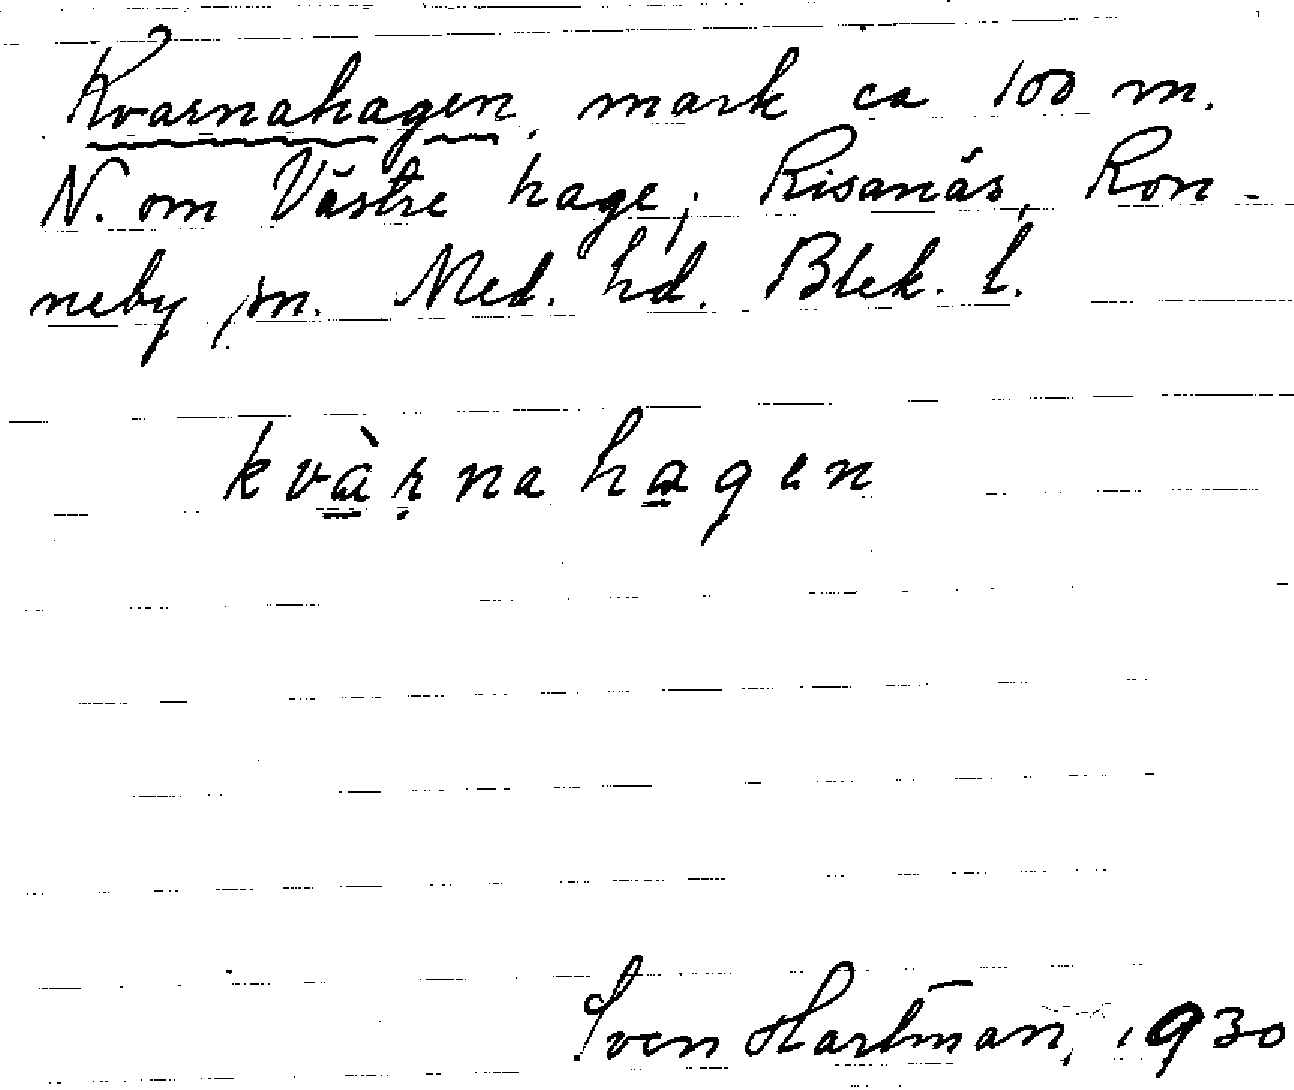 Kvarnahagen, mark ca 100 m.
N. om Västre hage, Risanäs, Ron-
neby sn. Med. hd. Blek. l.
kvàṛna hagen
Sven Hartman, 1930